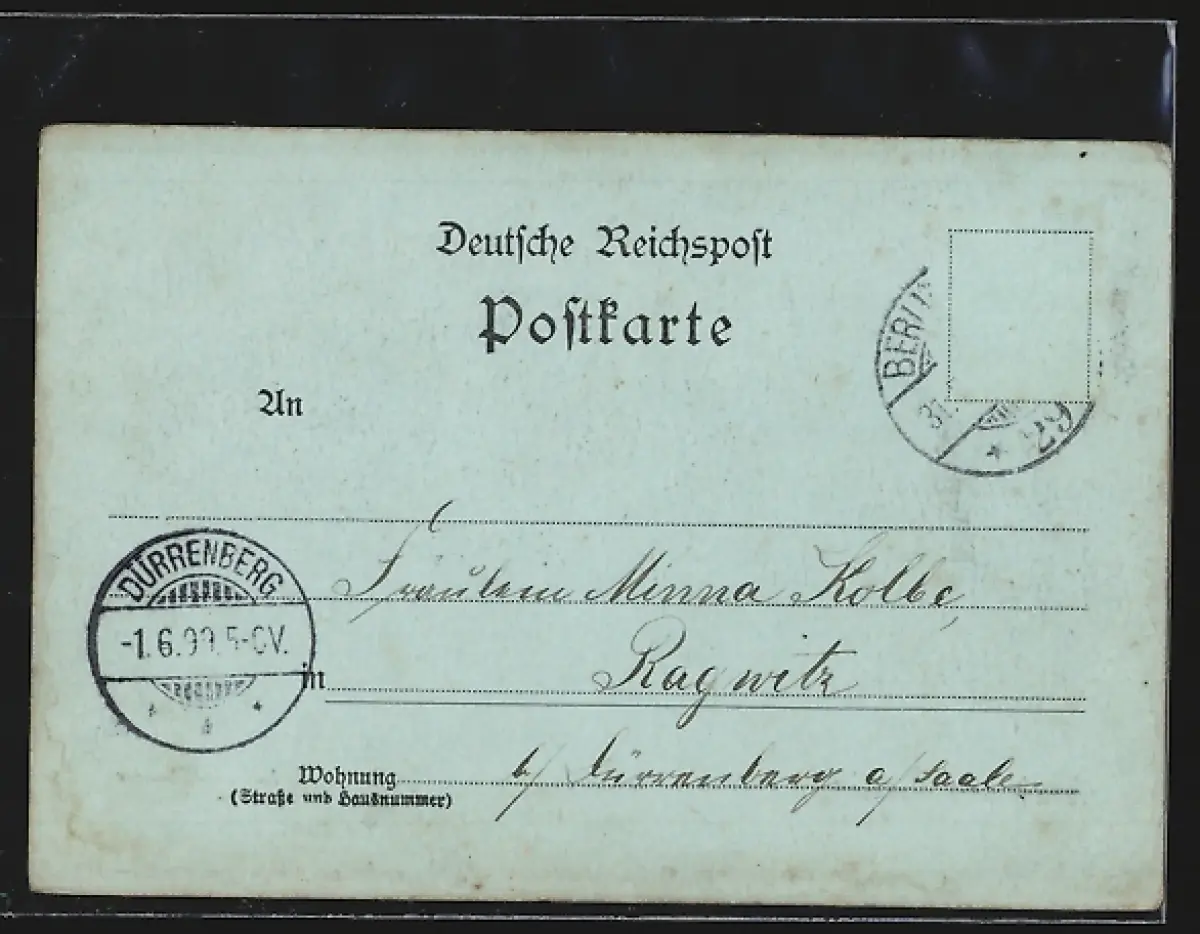 Deutsche Reichspost
Postkarte
BERLIN
31.
An
DÜRRENBERG
-1.6.99.5-6V.
Fräulein Minna Kolbe,
in Ragwitz
Wohnung b/ Dürrenberg a/Saale
(Straße und Hausnummer)